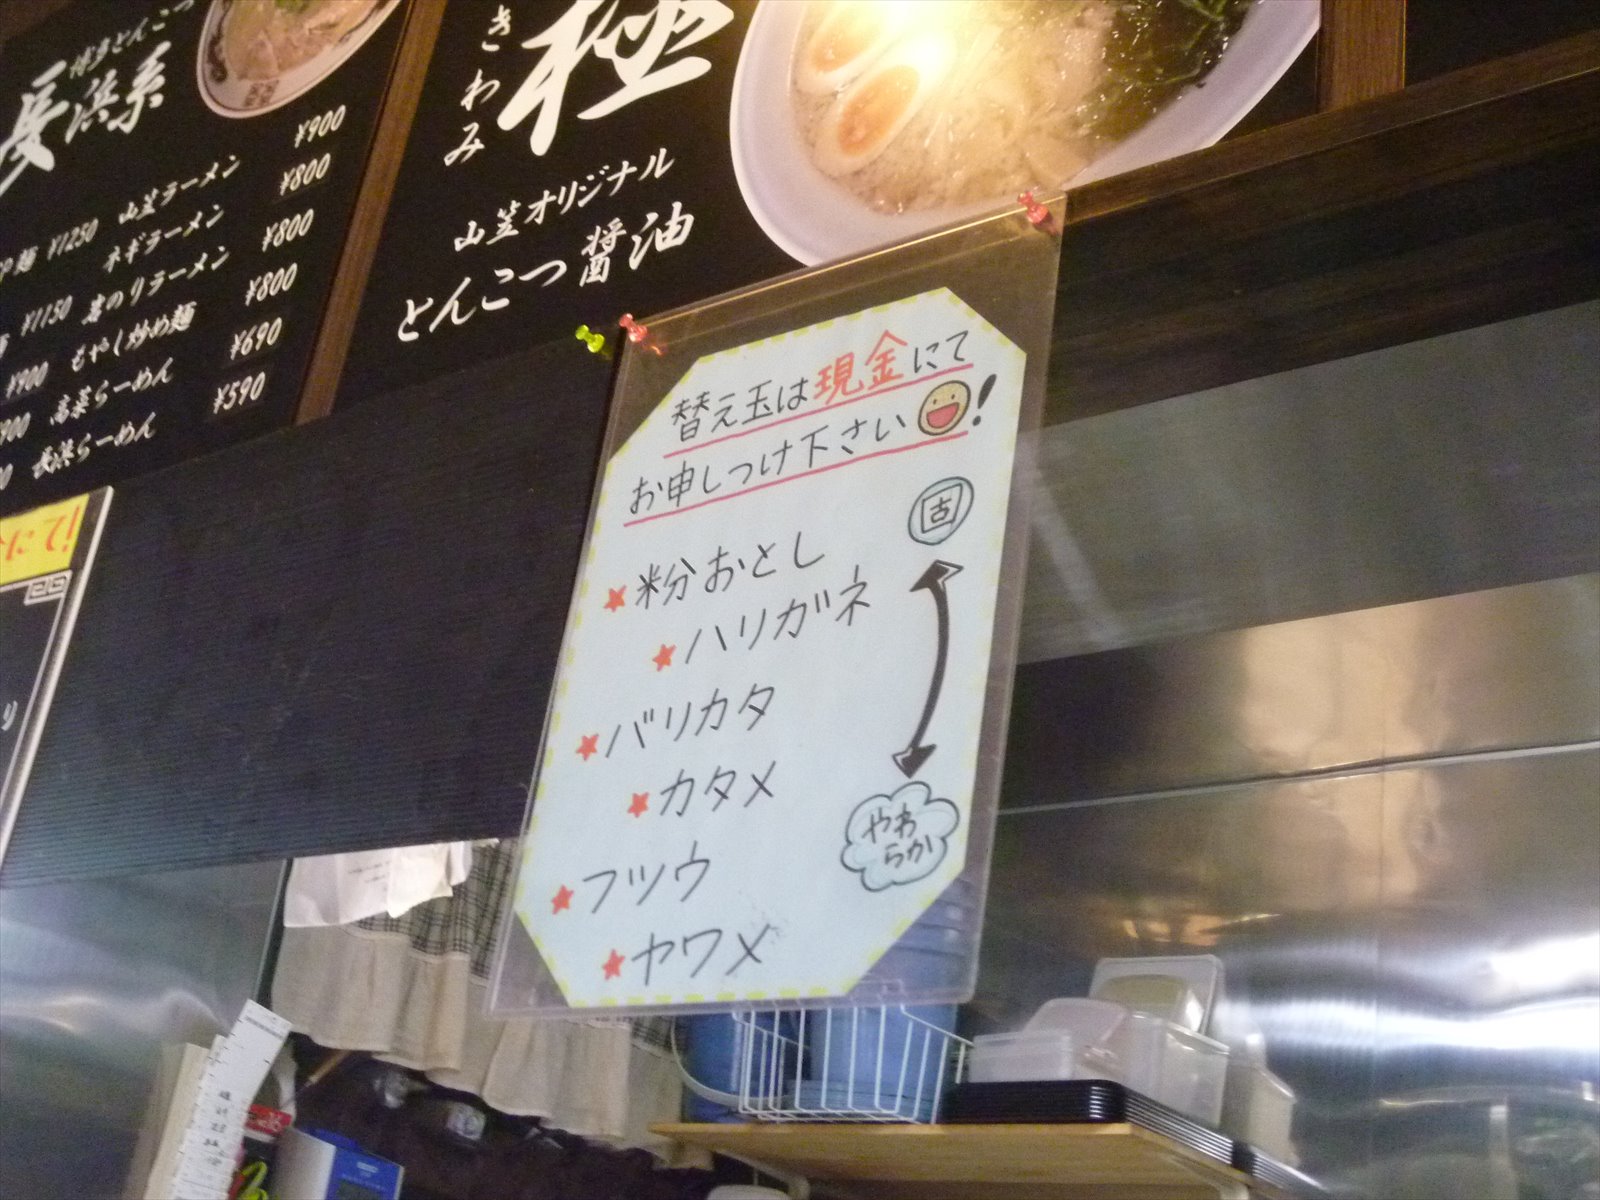 博多とんこつ
長浜系
山笠ラーメン ¥900
¥1250 ネギラーメン ¥800
¥1150 岩のりラーメン ¥800
¥900 もやし炒め麺 ¥800
高菜らーめん ¥690
長浜らーめん ¥590
きわみ
極
山笠オリジナル
とんこつ醤油
替え玉は現金にて
お申しつけ下さい!
固
★粉おとし
★ハリガネ
★バリカタ
★カタメ
★フツウ
★ヤワメ
やわ
らか